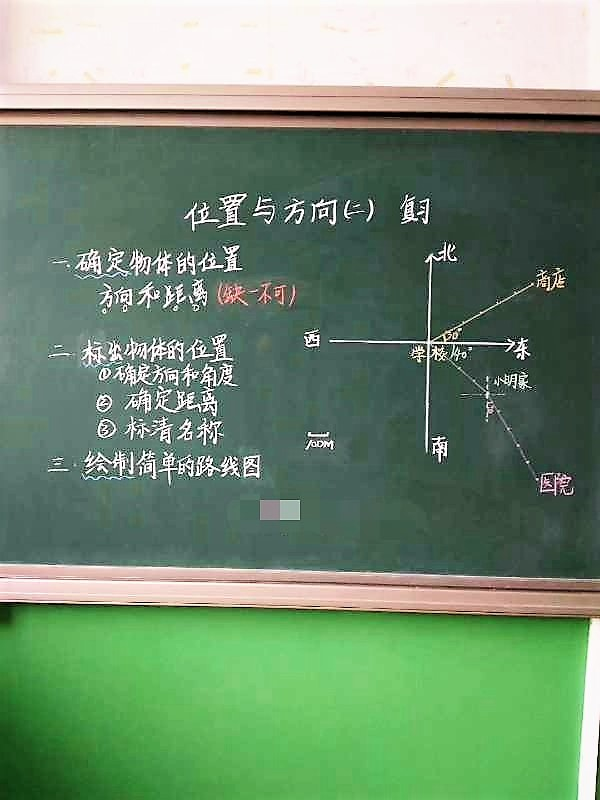 位置与方向(二) 复习
一.确定物体的位置
方向和距离(缺一不可)
二.标出物体的位置
①确定方向和角度
② 确定距离
③ 标清名称
三.绘制简单的路线图
北
商店
西
30°
东
学校
40°
小明家
100M
南
医院